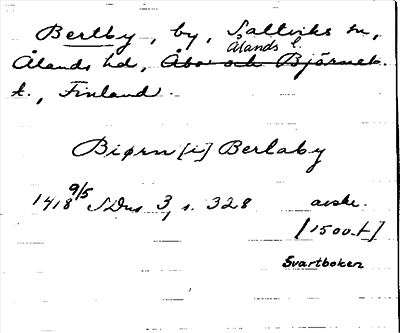 Bertby, by, Saltviks sn,
Ålands l.
Ålands hd, Åbo och Björneb.
l., Finland.
Biørn [i] Berlaby
1418 9/5 SDns 3, s. 328 avskr.
[1500-t]
Svartboken